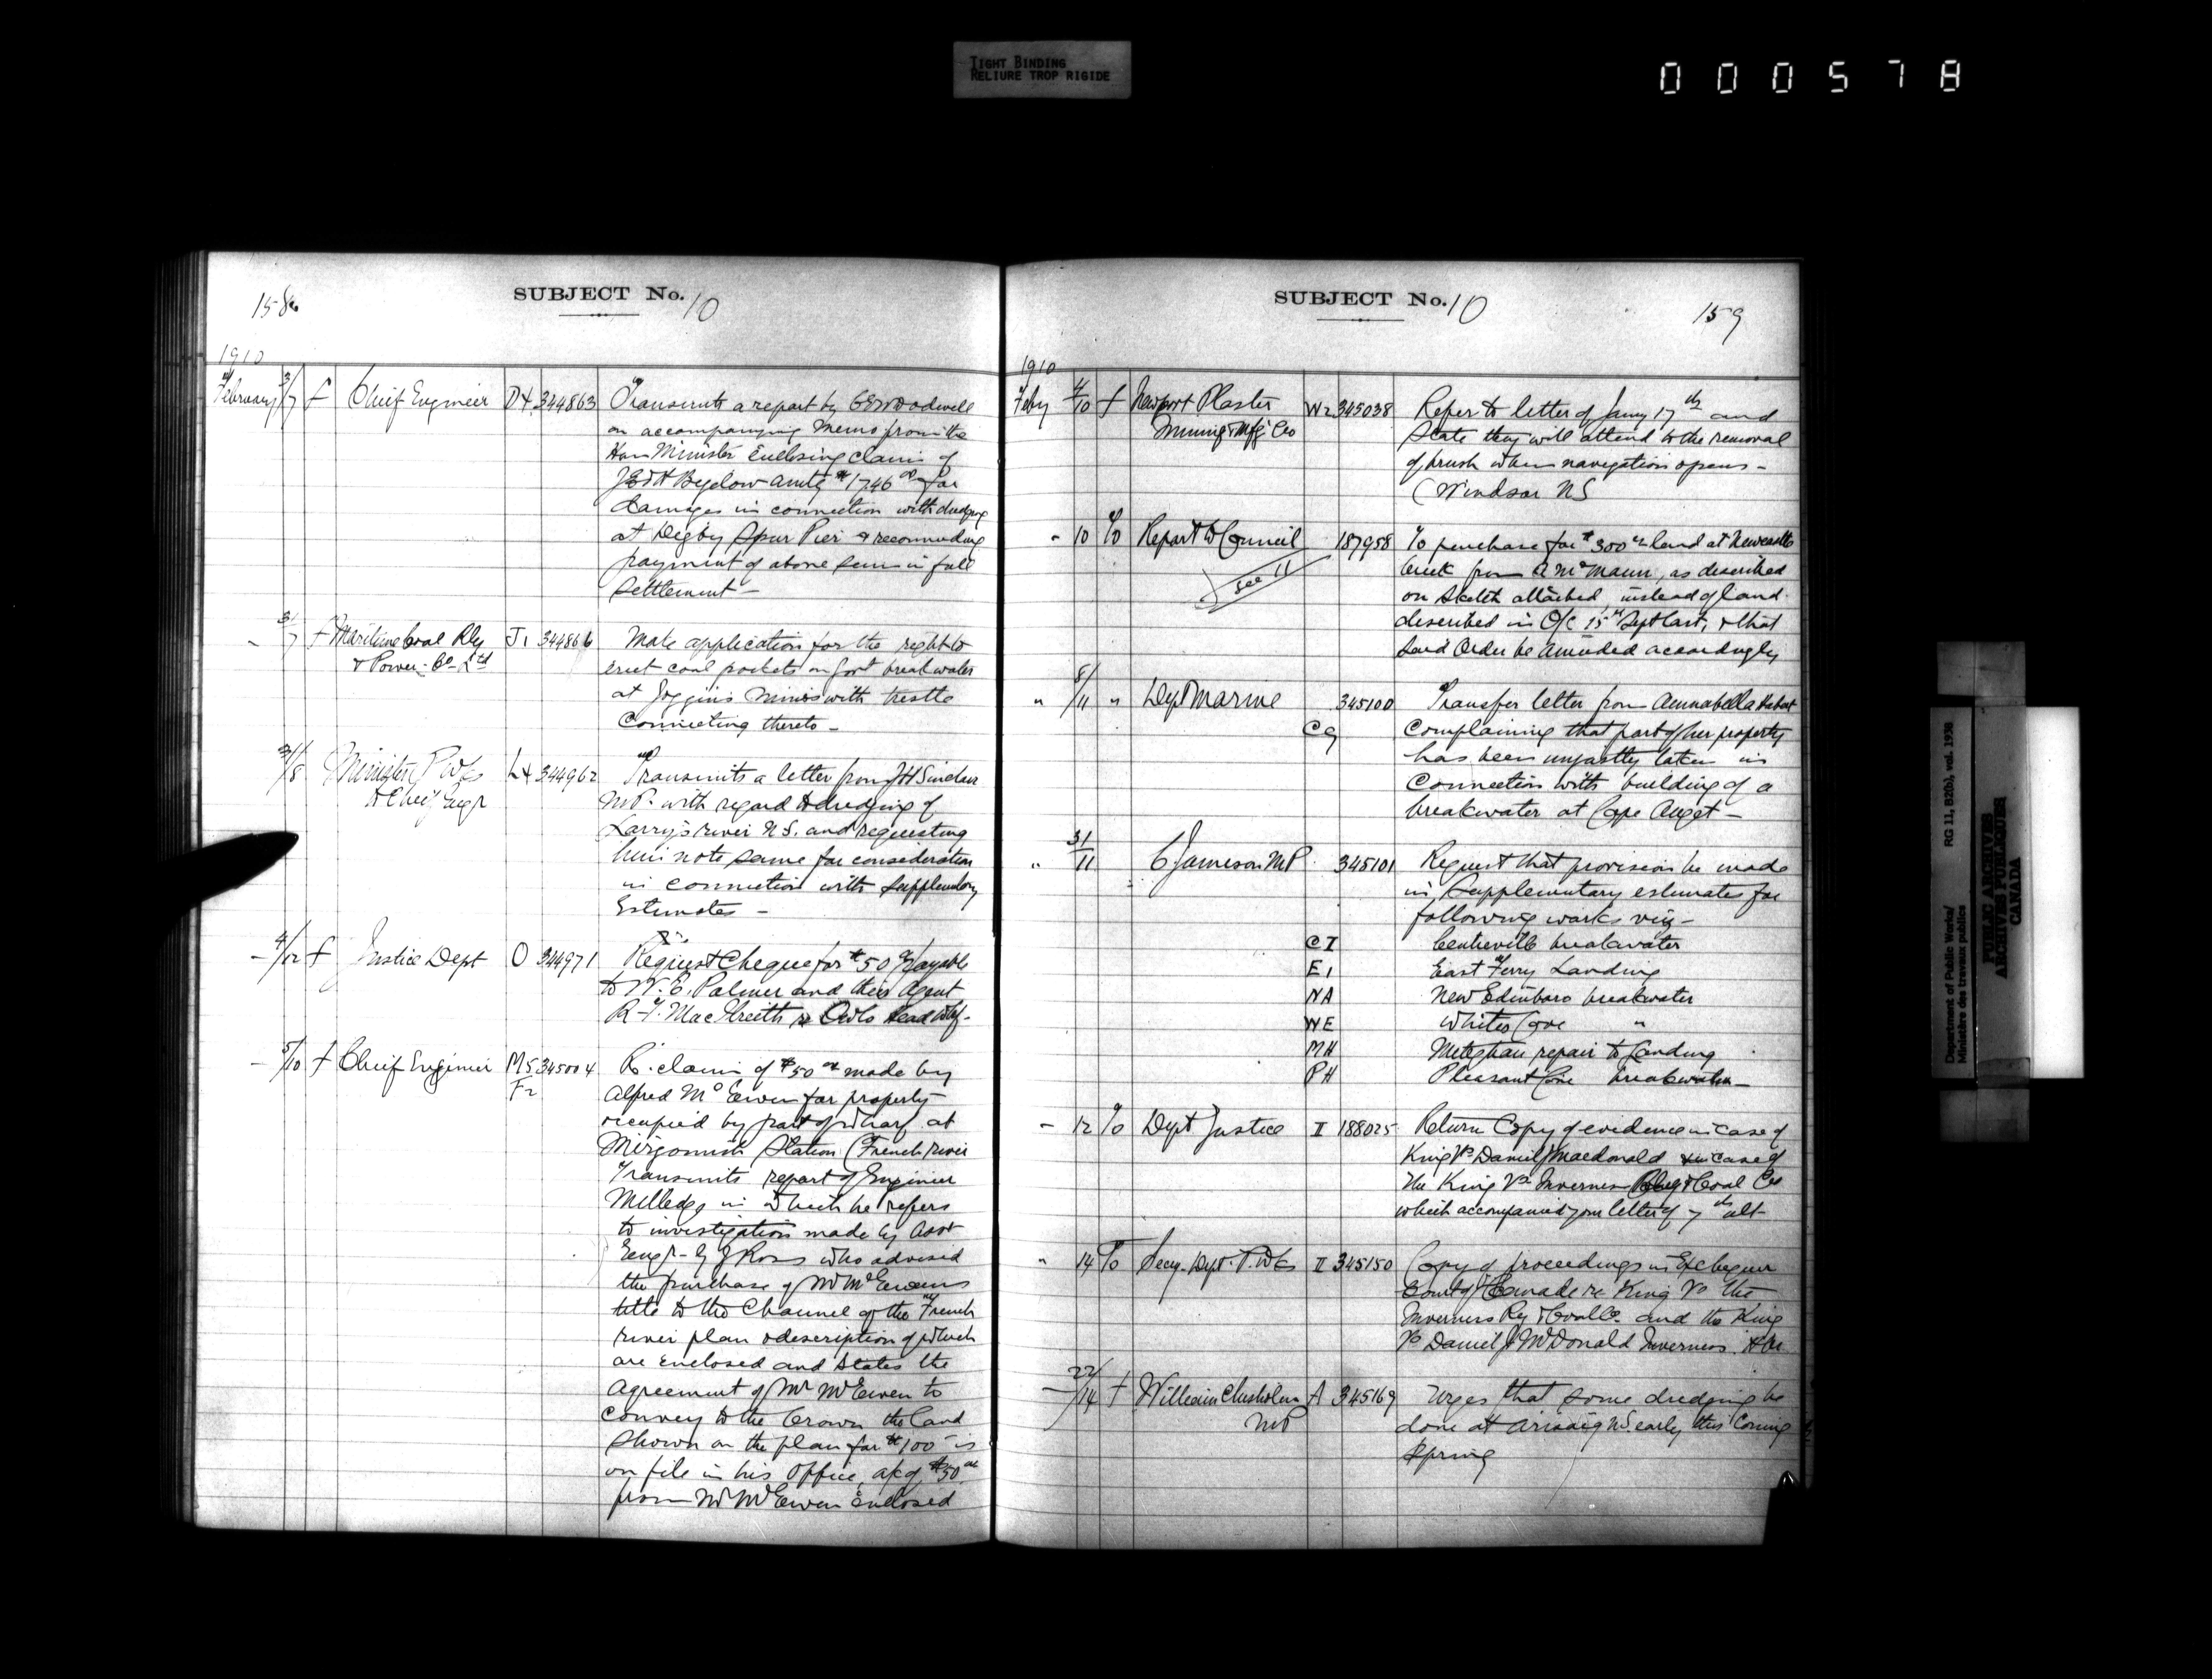 TIGHT BINDING
RELIURE TROP RIGIDE
000578
158
SUBJECT No. 10
1910
February 3/7 f Chief Engineer D4 344863 Transmits a report by GEW Dodwell
on accompanying memo from the
Hon Minister Enclosing claim of
J E & H Bigelow amtg $1746 00 for
damages in connection with dredging
at Digby Spur Pier & recommending
payment of above sum in full
settlement -
- 31/7 f Maritime Coal Rly J1 344866 Make application for the right to
& Power Co Ltd erect coal pockets on Govt breakwater
at Joggins Mines with trestle
connecting thereto -
31/8 Minister P Wks L4 344962 Transmits a letter from J H Sinclair
& Chief Engr M.P. with regard to dredging of
Larrys river N.S. and requesting
him note same for consideration
in connection with supplementary
Estimates -
- 4/ f Justice Dept O 344971 Request Cheque for $50 payable
to W. E. Palmer and their Agent
R. T. MacIlreith re Owls Head Whf -
- 5/10 f Chief Engineer M5 345004 Re claim of $50 00 made by
F2 Alfred McEwen for property
occupied by part of wharf at
Merigomish Station (French river
Transmits report of Engineer
Milledge in which he refers
to investigation made by Asst
Engr - Ross who advised
the purchase of Mr McEwens
title to the Channel of the French
river plan & description of which
are enclosed and states the
agreement of Mr McEwen to
convey to the Crown the land
shown on the plan for $100 - is
on file in his office, of $50 00
from Mr McEwen enclosed
SUBJECT No. 10
159
1910
Feby 4/10 f Newport Plaster W2 345038 Refer to letter of Jany 17th and
Mining & Mfg Co state they will attend to the removal
of brush when navigation opens -
(Windsor NS
- 10 To Report to Council 187958 To purchase for $300 00 land at Newcastle
see 11 Creek from A McMann, as described
on Sketch attached, instead of land
described in O/C 15th Sept last, & that
said Order be amended accordingly
" 8/11 " Dept Marine 345100 Transfer letter from Annabella
C9 Complaining that part of her property
has been unjustly taken in
connection with building of a
breakwater at Cape Auget -
" 31/11 C Jameson MP. 345101 Request that provision be made
in Supplementary estimates for
following works viz -
CI Centreville breakwater
E1 East Ferry Landing
NA New Edinboro breakwater
WE Whites Cove "
MH Meteghan repair to Landing
PH Pleasant Cove breakwater -
- 12 To Dept Justice II 188025 Return Copy of evidence in case of
King Vs Daniel J Macdonald & in case of
The King Vs Inverness Rly & Coal Co
which accompanied your letter of 7th ult -
" 14 To Secy. Dept. P. Wks II 345150 Copy of proceedings in Exchequer
Court of Canada re King Vs the
Inverness Ry & Coal Co. and the King
Vs Daniel J McDonald Inverness
- 22/14 f William Chisholm A 345169 Urges that some dredging be
MP done at Arisaig NS early this coming
Spring
Department of Public Works/ RG 11, B2(b), vol. 1938
Ministère des travaux publics
PUBLIC ARCHIVES
ARCHIVES PUBLIQUES
CANADA